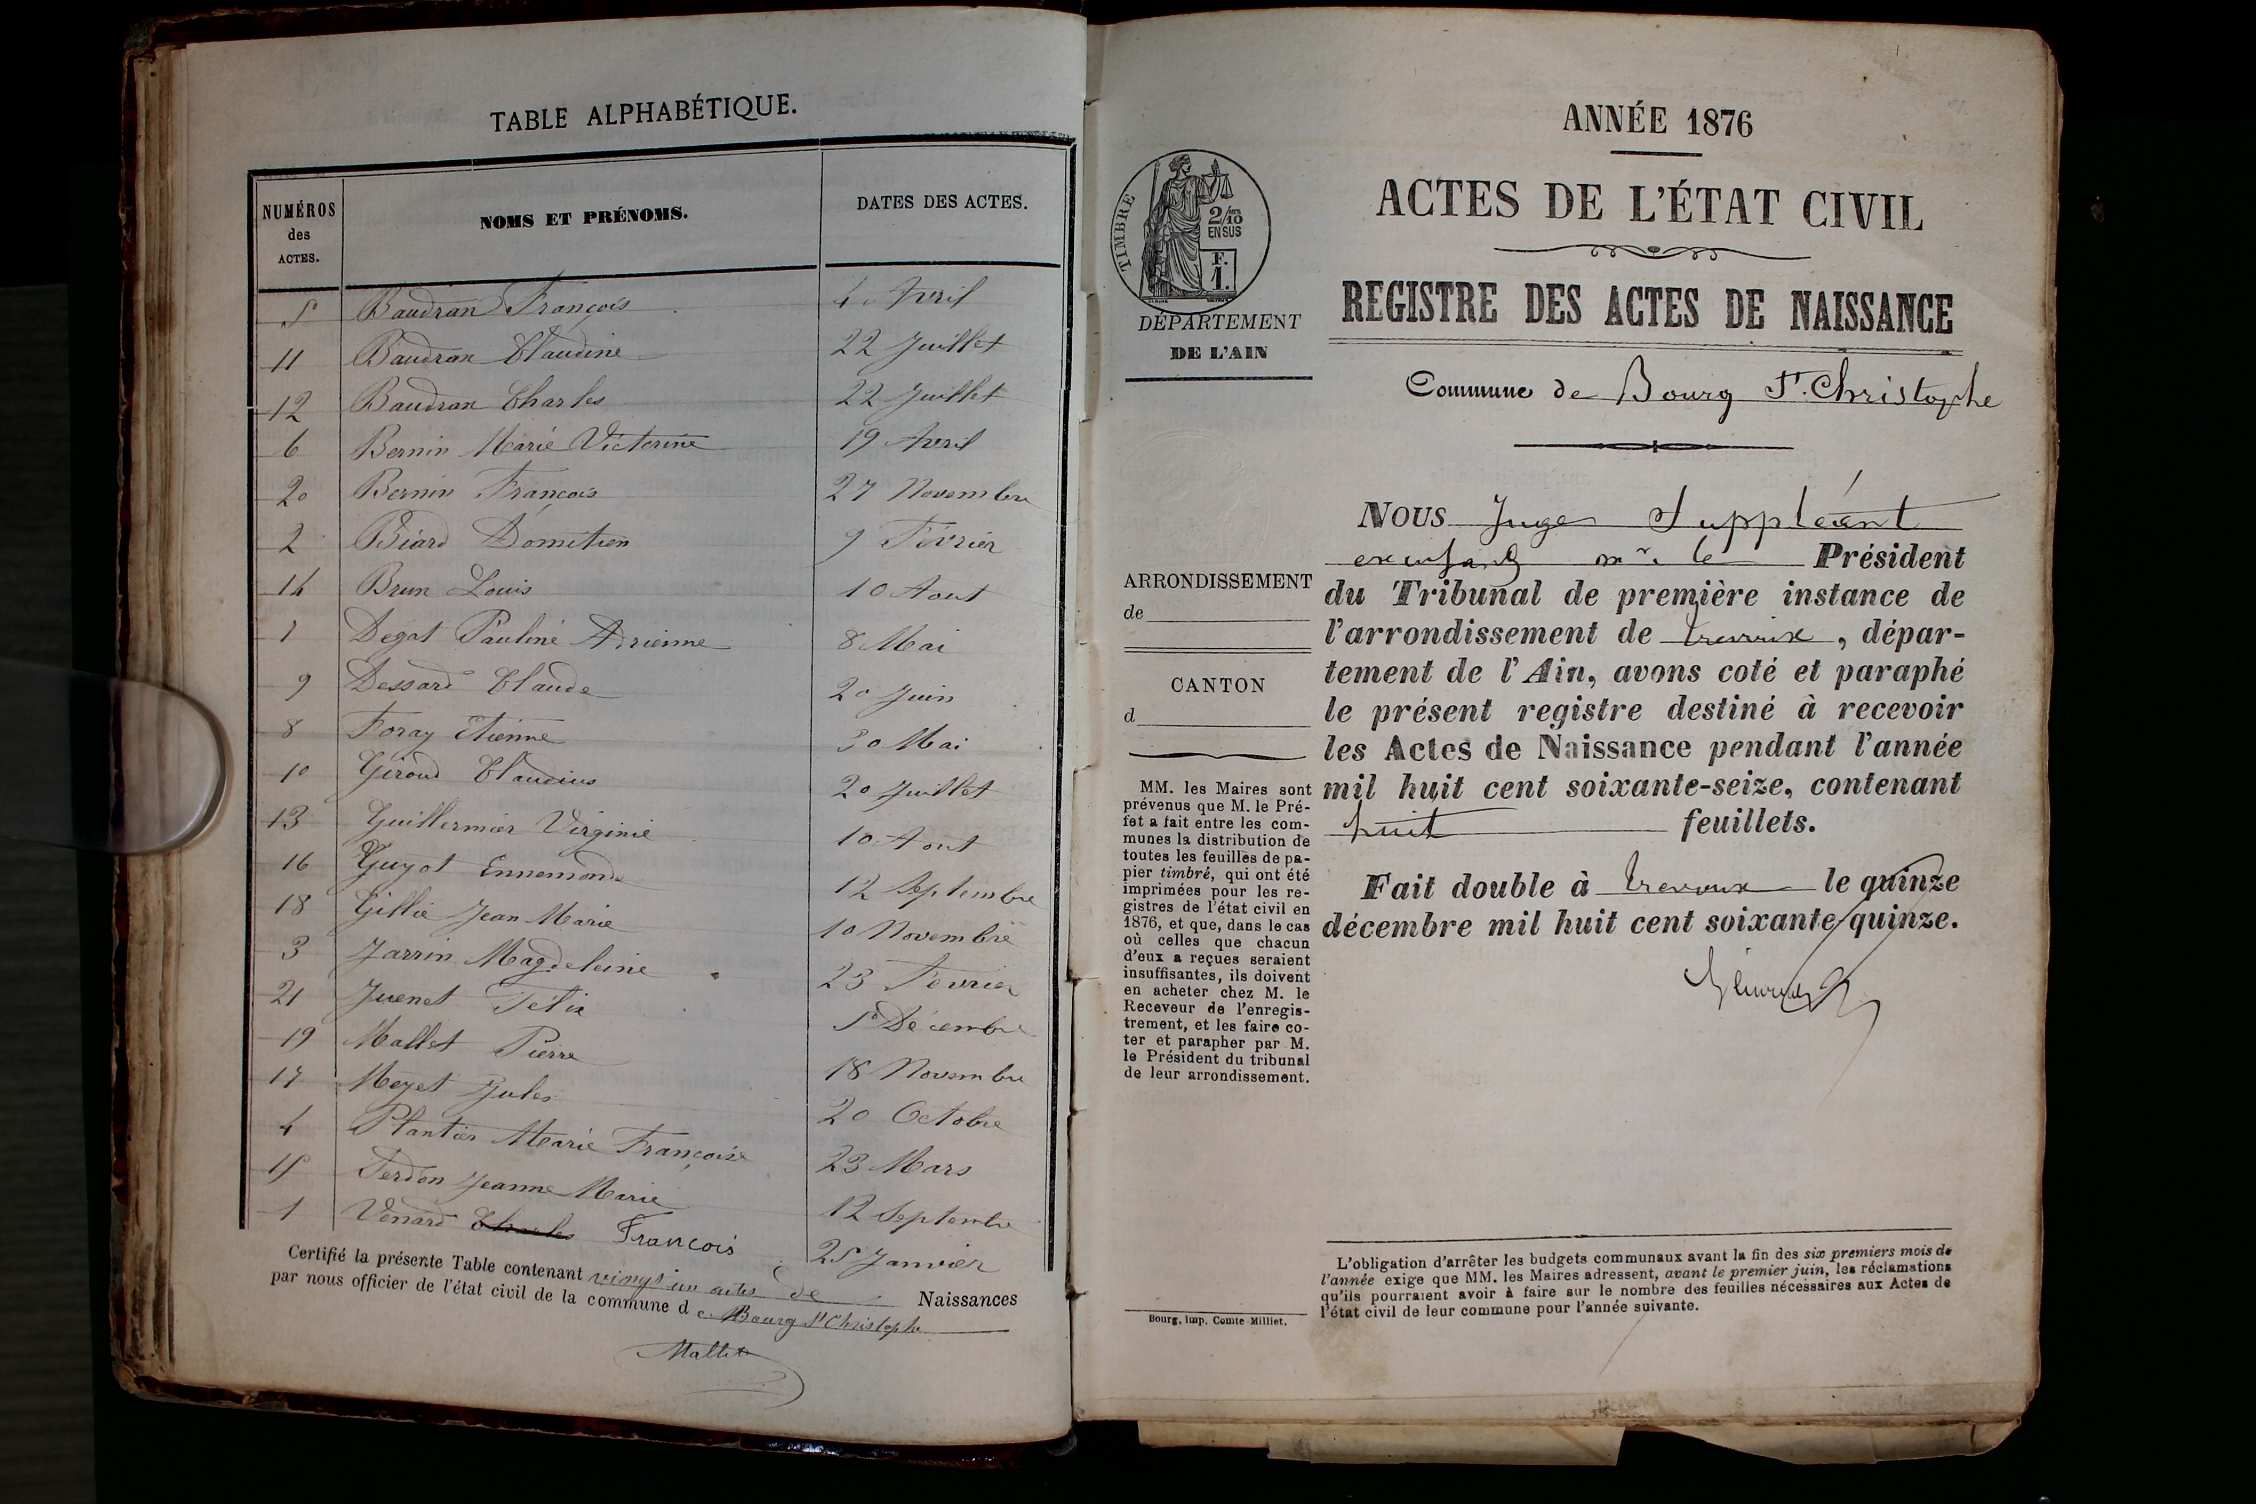 TABLE ALPHABÉTIQUE.
NUMÉROS des ACTES. NOMS ET PRÉNOMS. DATES DES ACTES.
5 Baudran François 4 Avril
11 Baudran Claudine 22 Juillet
12 Baudran Charles 22 Juillet
6 Bernin Marie Victorine 19 Avril
20 Bernin François 27 Novembre
2 Biard Domitien 9 Février
14 Brun Louis 10 Aout
7 Degat Pauline Adrienne 8 Mai
9 Dessard Claude 20 Juin
8 Foray Etienne 30 Mai
10 Giroud Claudius 20 Juillet
13 Guillermier Virginie 10 Aout
16 Guyot Ennemond 12 Septembre
18 Gillie Jean Marie 10 Novembre
3 Jarrin Magdeleine 23 Fevrier
21 Juenet Félix 5 Décembre
19 Mallet Pierre 18 Novembre
17 Meyet Jules 20 Octobre
4 Plantier Marie Françoise 23 Mars
15 Jeanne Marie 12 Septembre
1 Venard Charles François 25 Janvier
Certifié la présente Table contenant vingt un actes de Naissances
par nous officier de l'état civil de la commune de Bourg St Christophe
Mallet
ANNÉE 1876
ACTES DE L'ÉTAT CIVIL
REGISTRE DES ACTES DE NAISSANCE
Commune de Bourg St. Christophe
TIMBRE
2/10 EN SUS
F. 1.
DÉPARTEMENT
DE L'AIN
ARRONDISSEMENT
de
CANTON
d
MM. les Maires sont
prévenus que M. le Pré-
fet a fait entre les com-
munes la distribution de
toutes les feuilles de pa-
pier timbré, qui ont été
imprimées pour les re-
gistres de l'état civil en
1876, et que, dans le cas
où celles que chacun
d'eux a reçues seraient
insuffisantes, ils doivent
en acheter chez M. le
Receveur de l'enregis-
trement, et les faire co-
ter et parapher par M.
le Président du tribunal
de leur arrondissement.
Bourg, imp. Comte-Milliet.
Nous Juge Suppléant
mr. le Président
du Tribunal de première instance de
l'arrondissement de trevoux, dépar-
tement de l'Ain, avons coté et paraphé
le présent registre destiné à recevoir
les Actes de Naissance pendant l'année
mil huit cent soixante-seize, contenant
huit feuillets.
Fait double à trevoux le quinze
décembre mil huit cent soixante quinze.
L'obligation d'arrêter les budgets communaux avant la fin des six premiers mois de
l'année exige que MM. les Maires adressent, avant le premier juin, les réclamations
qu'ils pourraient avoir à faire sur le nombre des feuilles nécessaires aux Actes de
l'état civil de leur commune pour l'année suivante.